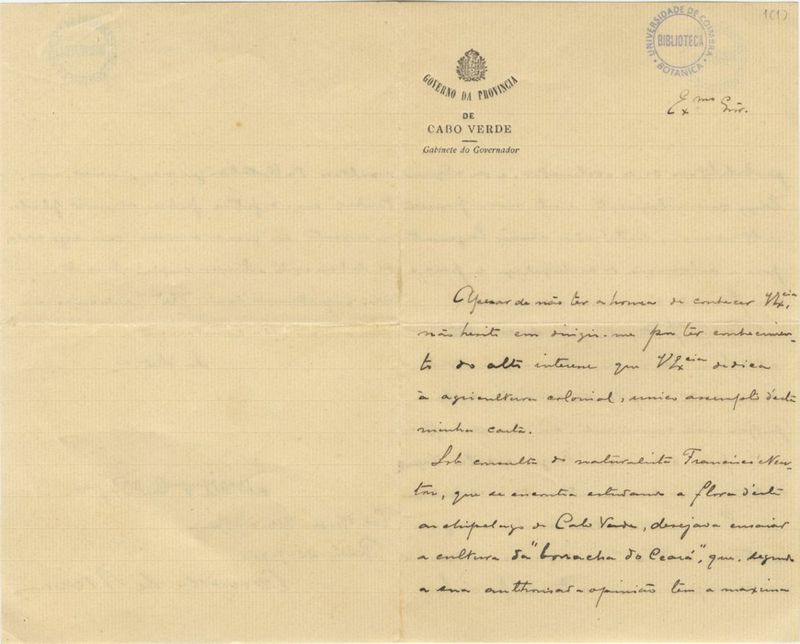 UNIVERSIDADE DE COIMBRA
BIBLIOTECA
BOTANICA
GOVERNO DA PROVINCIA
DE
CABO VERDE
Gabinete do Governador
Exmo Snr.
Apesar de não ter a honra de conhecer VExcia,
não hesito em dirigir-me por ter conhecimen-
to do alto interesse que VExcia dedica
à agricultura colonial, unico assumpto d'esta
minha carta.
Sob consulta do naturalista Francisco New-
ton, que se encontra estudando a flora d'este
archipelago de Cabo Verde, desejava ensaiar
a cultura da "borracha do Ceará", que, segundo
a sua authorisada opinião tem a maxima